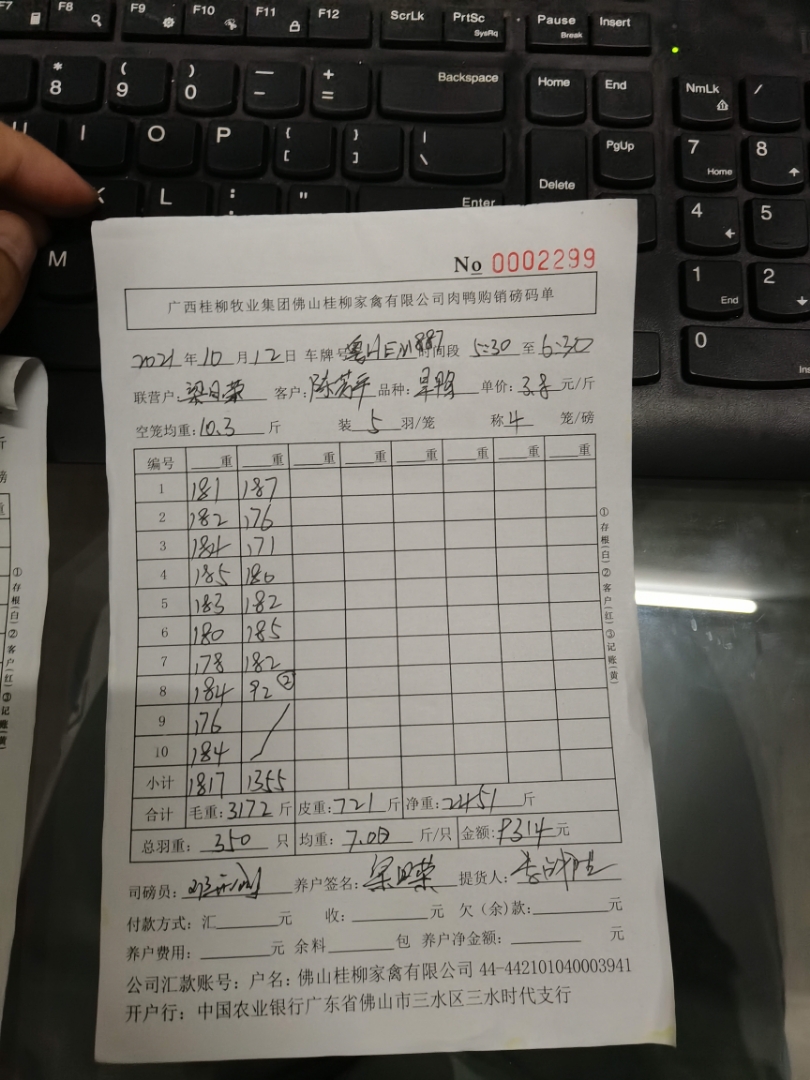 F7 F8 F9 F10 F11 F12 ScrLk PrtSc SysRq Pause Break Insert
* 8 ( 9 ) 0 — - + = Backspace Home End NmLk /
U I O P { [ } ] | \ Delete PgUp 7 Home 8
K L : " Enter 4 5
M 1 End 2 0 Ins
No 0002299
广西桂柳牧业集团佛山桂柳家禽有限公司肉鸭购销磅码单
2021年10月12日 车牌号:粤HEM887 时间段 5:30 至 6:30
联营户: 梁日荣 客户: 品种:旱鸭 单价:3.8元/斤
空笼均重:10.3斤 装5羽/笼 称4笼/磅
编号 重 重 重 重 重 重 重 重
1 181 187
2 182 176
3 184 171
4 185 180
5 183 182
6 180 185
7 178 182
8 184 92 ②
9 176
10 184
小计 1817 1355
合计 毛重:3172斤 皮重:721斤 净重:2451斤
总羽重:350只 均重:7.0斤/只 金额:9314元
司磅员: 养户签名:梁日荣 提货人:
付款方式:汇 元 收: 元 欠(余)款: 元
养户费用: 元 余料 包 养户净金额: 元
公司汇款账号:户名:佛山桂柳家禽有限公司 44-442101040003941
开户行:中国农业银行广东省佛山市三水区三水时代支行
①存根(白)②客户(红)③记账(黄)
斤
磅
重
①存根(白)②客户(红)③记账(黄)